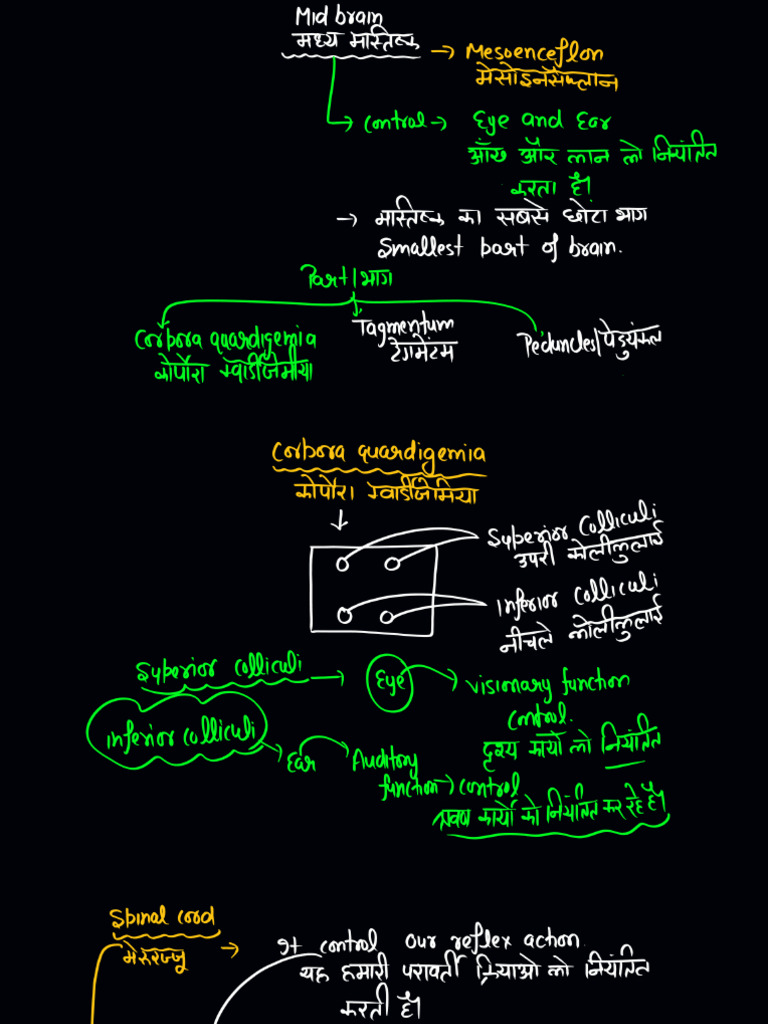 Mid brain
मध्य मास्तिष्क → Mesoenceflon
मेसोइनसेफ्लान
→ Control → Eye and Ear
आँख और कान को नियंत्रित
करता है।
→ मास्तिष्क का सबसे छोटा भाग
Smallest part of brain.
Part/भाग
Corbora quardigemia
कोर्पोरा क्वार्डीजिमीया
Tagmentum
टेगमेंटम
Peduncles/पेडुयंकल
Corbora quardigemia
कोर्पोरा क्वार्डीजिमिया
Superior Colliculi
उपरी कोलीकुलाई
Inferior Colliculi
नीचले कोलीकुलाई
Superior colliculi → Eye → Visionary function
Control.
दृश्य कार्यो को नियंत्रित
Inferior colliculi → Ear → Auditory
function → control
श्रवण कार्यो को नियंत्रित कर रहे है।
Spinal cord
मेरुरज्जू → It control our reflex action
यह हमारी परावर्ती क्रियाओ को नियंत्रित
करती है।